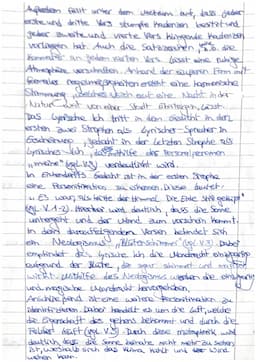 Außerdem fällt unter dem Metrum auf, dass jeder
erste und dritte Vers stumpfe Kadenzen besitzt und
jeder zweite und vierte Vers klingende Kadenzen
vorliegen hat. Auch die Satzzeichen, z.B. die
Kommas an jedem vierten Vers, lässt eine ruhige
Atmosphäre verschaffen. Anhand der äußeren Form mit
formalen Regelmäßigkeiten ensteht eine harmonische
Stimmung, welches auch auf eine Nacht in der
Natur und von einer Stadt
Das lyrische Ich tritt in dem Gedicht in den
ersten zwei Strophen als lyrischer Sprecher in
Erscheinung, jedoch in der letzten Strophe als
lyrisches Ich, das mithilfe des Personalpronomen
"meine" (vgl. V.9) verdeutlicht wird.
In Eichendorffs Gedicht ist in der ersten Strophe
eine Personifikation zu erkennen. Diese lautet:
"Es war, als hätte der Himmel Die Erde still geküsst"
(vgl. V. 1-2). Hierbei wird deutlich, dass die Sonne
untergeht und der Mond zum Vorschein kommt.
In dem darauffolgenden Vers befindet sich
ein Neologismus, "Blütenschimmer" (vgl. V.3). Dabei
empfindet das lyrische Ich die Mondnacht
aufgrund der Blüte, schimmert und
wirkt. Mithilfe des Neologismus werden die
und magische Mondnacht hervorgehoben.
Anschließend ist eine weitere Personifikation zu
identifizieren. Dabei handelt es um die Luft, welche
die Eigenschaft des Gehens bekommt und durch die
Felder läuft (vgl. V.5). Durch diese Metapher, wird
deutlich, dass die Sonne beinahe nicht mehr zu sehen
ist, weshalb sich das Klima kühlt und der Wind
wehen kann.